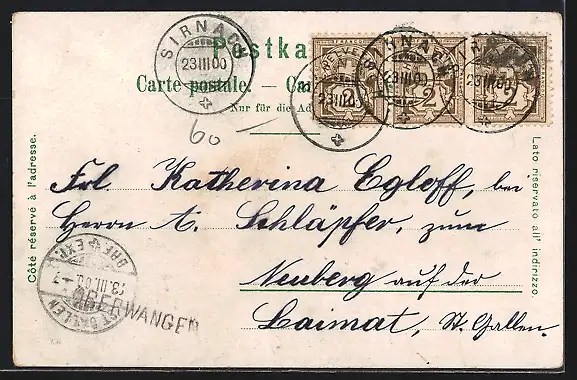 Postka
Carte postale. — Ca
Nur für die Ad
SIRNACH
23 III 00
HELVE
SIRNACH
23 III 00
2
2
2
60
Côté réservé à l'adresse.
Lato riservato all' indirizzo.
Frl Katherina Egloff, bei
Herrn A. Schläpfer, zum
Neuberg auf der
Laimat, St. Gallen.
ST. GALLEN
BRF. EXP.
23. III. 00. – 7
OBERWANGEN